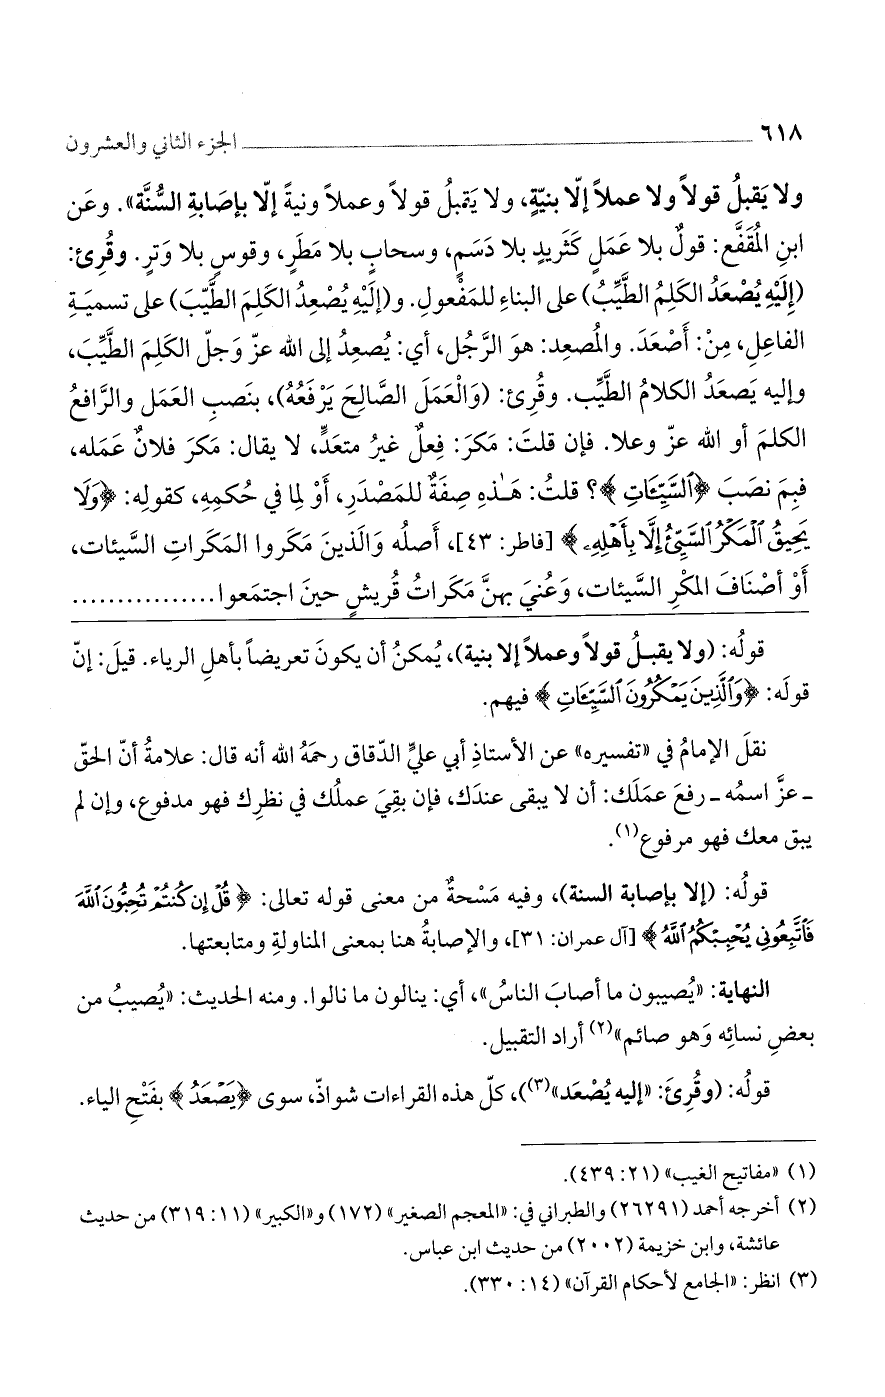 ٦١٨ ــــــــــــــــــــ الجزء الثاني والعشرون
ولا يَقبلُ قولاً ولا عملاً إلّا بنيّة، ولا يَقبلُ قولاً وعملاً ونيةً إلّا بإصَابةِ السُّنَّة». وعَن
ابنِ المُقَفَّع: قولٌ بلا عَمَلٍ كَثَريدٍ بلا دَسَمٍ، وسحابٍ بلا مَطَرٍ، وقوسٍ بلا وَترٍ. وقُرِئ:
(إِلَيْهِ يُصْعَدُ الكَلِمُ الطَّيِّبُ) على البناءِ للمَفْعولِ. و(إلَيْهِ يُصْعِدُ الكَلِمَ الطَّيِّبَ) على تسميَةِ
الفاعِلِ، مِنْ: أَصْعَدَ. والمُصعِد: هوَ الرَّجُل، أي: يُصعِدُ إلى الله عزّ وَجلّ الكَلِمَ الطَّيِّبَ،
وإليه يَصعَدُ الكلامُ الطَّيِّب. وقُرِئ: (وَالْعَمَلَ الصَّالِحَ يَرْفَعُهُ)، بنَصبِ العَمَل والرَّافعُ
الكلمَ أو الله عزّ وعلا. فإن قلتَ: مَكرَ: فِعلٌ غيرُ متعَدٍّ، لا يقال: مَكرَ فلانٌ عَمَله،
فبِمَ نصَبَ ﴿السَّيِّئَاتِ﴾؟ قلتُ: هَـٰذهِ صِفَةٌ للمَصْدَرِ، أَوْ لِما في حُكمِهِ، كقولِه: ﴿وَلَا
يَحِيقُ الْمَكْرُ السَّيِّئُ إِلَّا بِأَهْلِهِ﴾ [فاطر: ٤٣]، أَصلُه وَالَذينَ مَكَروا المَكَراتِ السَّيئات،
أَوْ أصْنَافَ المكْرِ السَّيئات، وَعُنيَ بهنَّ مَكَراتُ قُريشٍ حينَ اجتمَعوا................
قولُه: (ولا يقبلُ قولاً وعملاً إلا بنية)، يُمكنُ أن يكونَ تعريضاً بأهلِ الرياء. قيلَ: إنّ
قولَه: ﴿وَالَّذِينَ يَمْكُرُونَ السَّيِّئَاتِ﴾ فيهم.
نقلَ الإمامُ في «تفسيره» عن الأستاذِ أبي عليٍّ الدّقاق رحمَهُ الله أنه قال: علامةُ أنّ الحقّ
ـ عزَّ اسمُه ـ رفعَ عمَلَك: أن لا يبقى عندَك، فإن بقِيَ عملُك في نظرِك فهو مدفوع، وإن لم
يبق معك فهو مرفوع(١).
قولُه: (إلا بإصابة السنة)، وفيه مَسْحةٌ من معنى قوله تعالى: ﴿قُلْ إِن كُنتُمْ تُحِبُّونَ اللَّهَ
فَاتَّبِعُونِي يُحْبِبْكُمُ اللَّهُ﴾ [آل عمران: ٣١]، والإصابةُ هنا بمعنى المناولةِ ومتابعتها.
النهاية: «يُصيبون ما أصابَ الناسُ»، أي: ينالون ما نالوا. ومنه الحديث: «يُصيبُ من
بعضِ نسائِه وَهو صائم»(٢) أراد التقبيل.
قولُه: (وقُرِئَ: «إليه يُصْعَد»(٣))، كلّ هذه القراءات شواذّ، سوى ﴿يَصْعَدُ﴾ بفَتْحِ الياء.
(١) «مفاتيح الغيب» (٢١: ٤٣٩).
(٢) أخرجه أحمد (٢٦٢٩١) والطبراني في: «المعجم الصغير» (١٧٢) و«الكبير» (١١: ٣١٩) من حديث
عائشة، وابن خزيمة (٢٠٠٢) من حديث ابن عباس.
(٣) انظر: «الجامع لأحكام القرآن» (١٤: ٣٣٠).